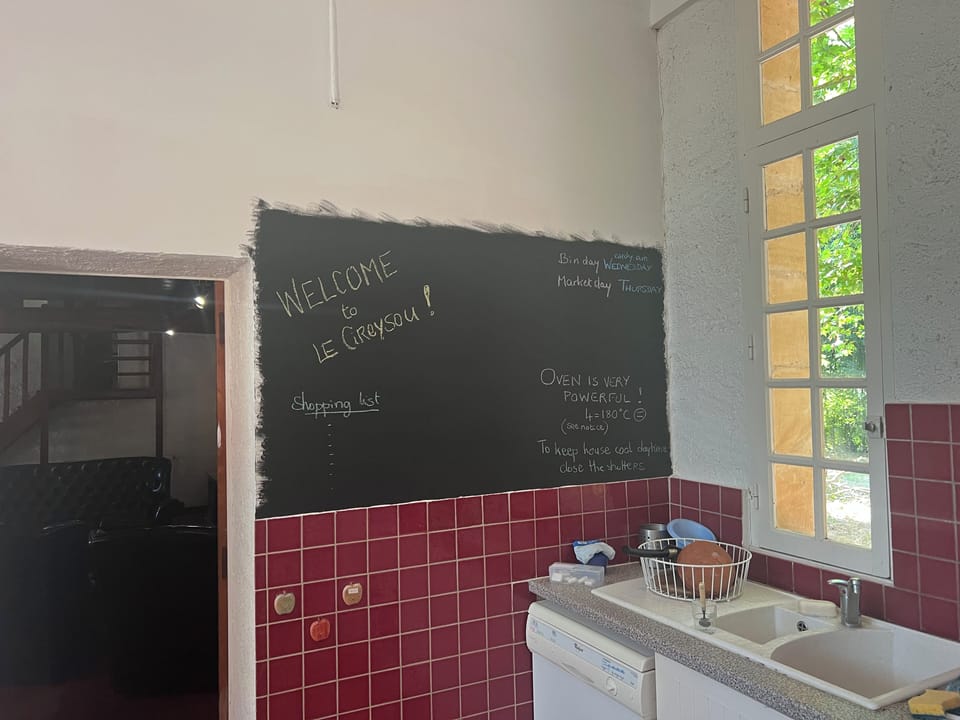 WELCOME
to
LE GREYSOU!
Shopping list
Bin day early am WEDNESDAY
Market day THURSDAY
OVEN IS VERY
POWERFUL!
4=180°C
(see notice)
To keep house cool daytime
close the shutters